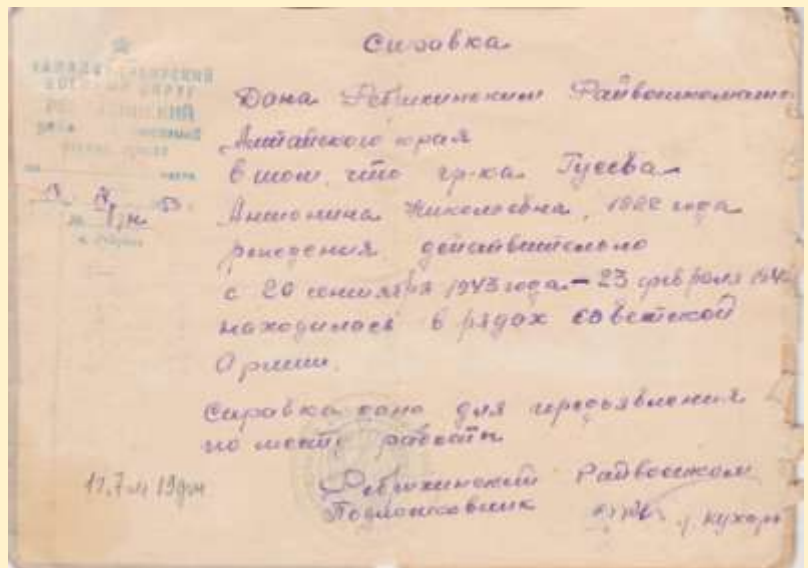 Справка
ЗАПАДНО-СИБИРСКИЙ
ВОЕННЫЙ ОКРУГ
Дана Ребрихинским Райвоенкоматом
Алтайского края
в том, что гр-ка Гусева
Антонина Николаевна, 1922 года
рождения, действительно
с 20 сентября 1943 года - 23 февраля
находилась в рядах советской
Армии.
Справка дана для предъявления
по месту работы
Ребрихинский Райвоенком
Подполковник